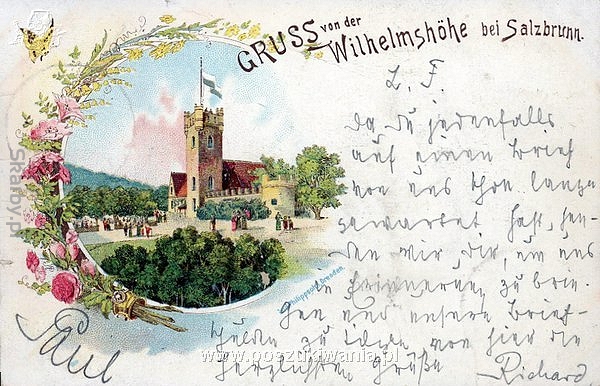 GRUSS von der
Wilhelmshöhe bei Salzbrunn.
L. F.
Da Du jedenfalls
auf einen Brief
von uns schon lange
gewartet hast, sen-
den wir Dir, um uns
in Erinnerung zu brin-
gen und unsere Brief-
schulden zu von hier die
herzlichsten Grüße
Richard
Paul
Dresden.
www.poszukiwania.pl
Skarby.pl